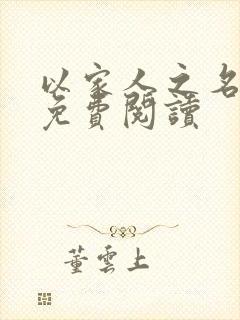 以家人之名
免費閱讀
董雲上